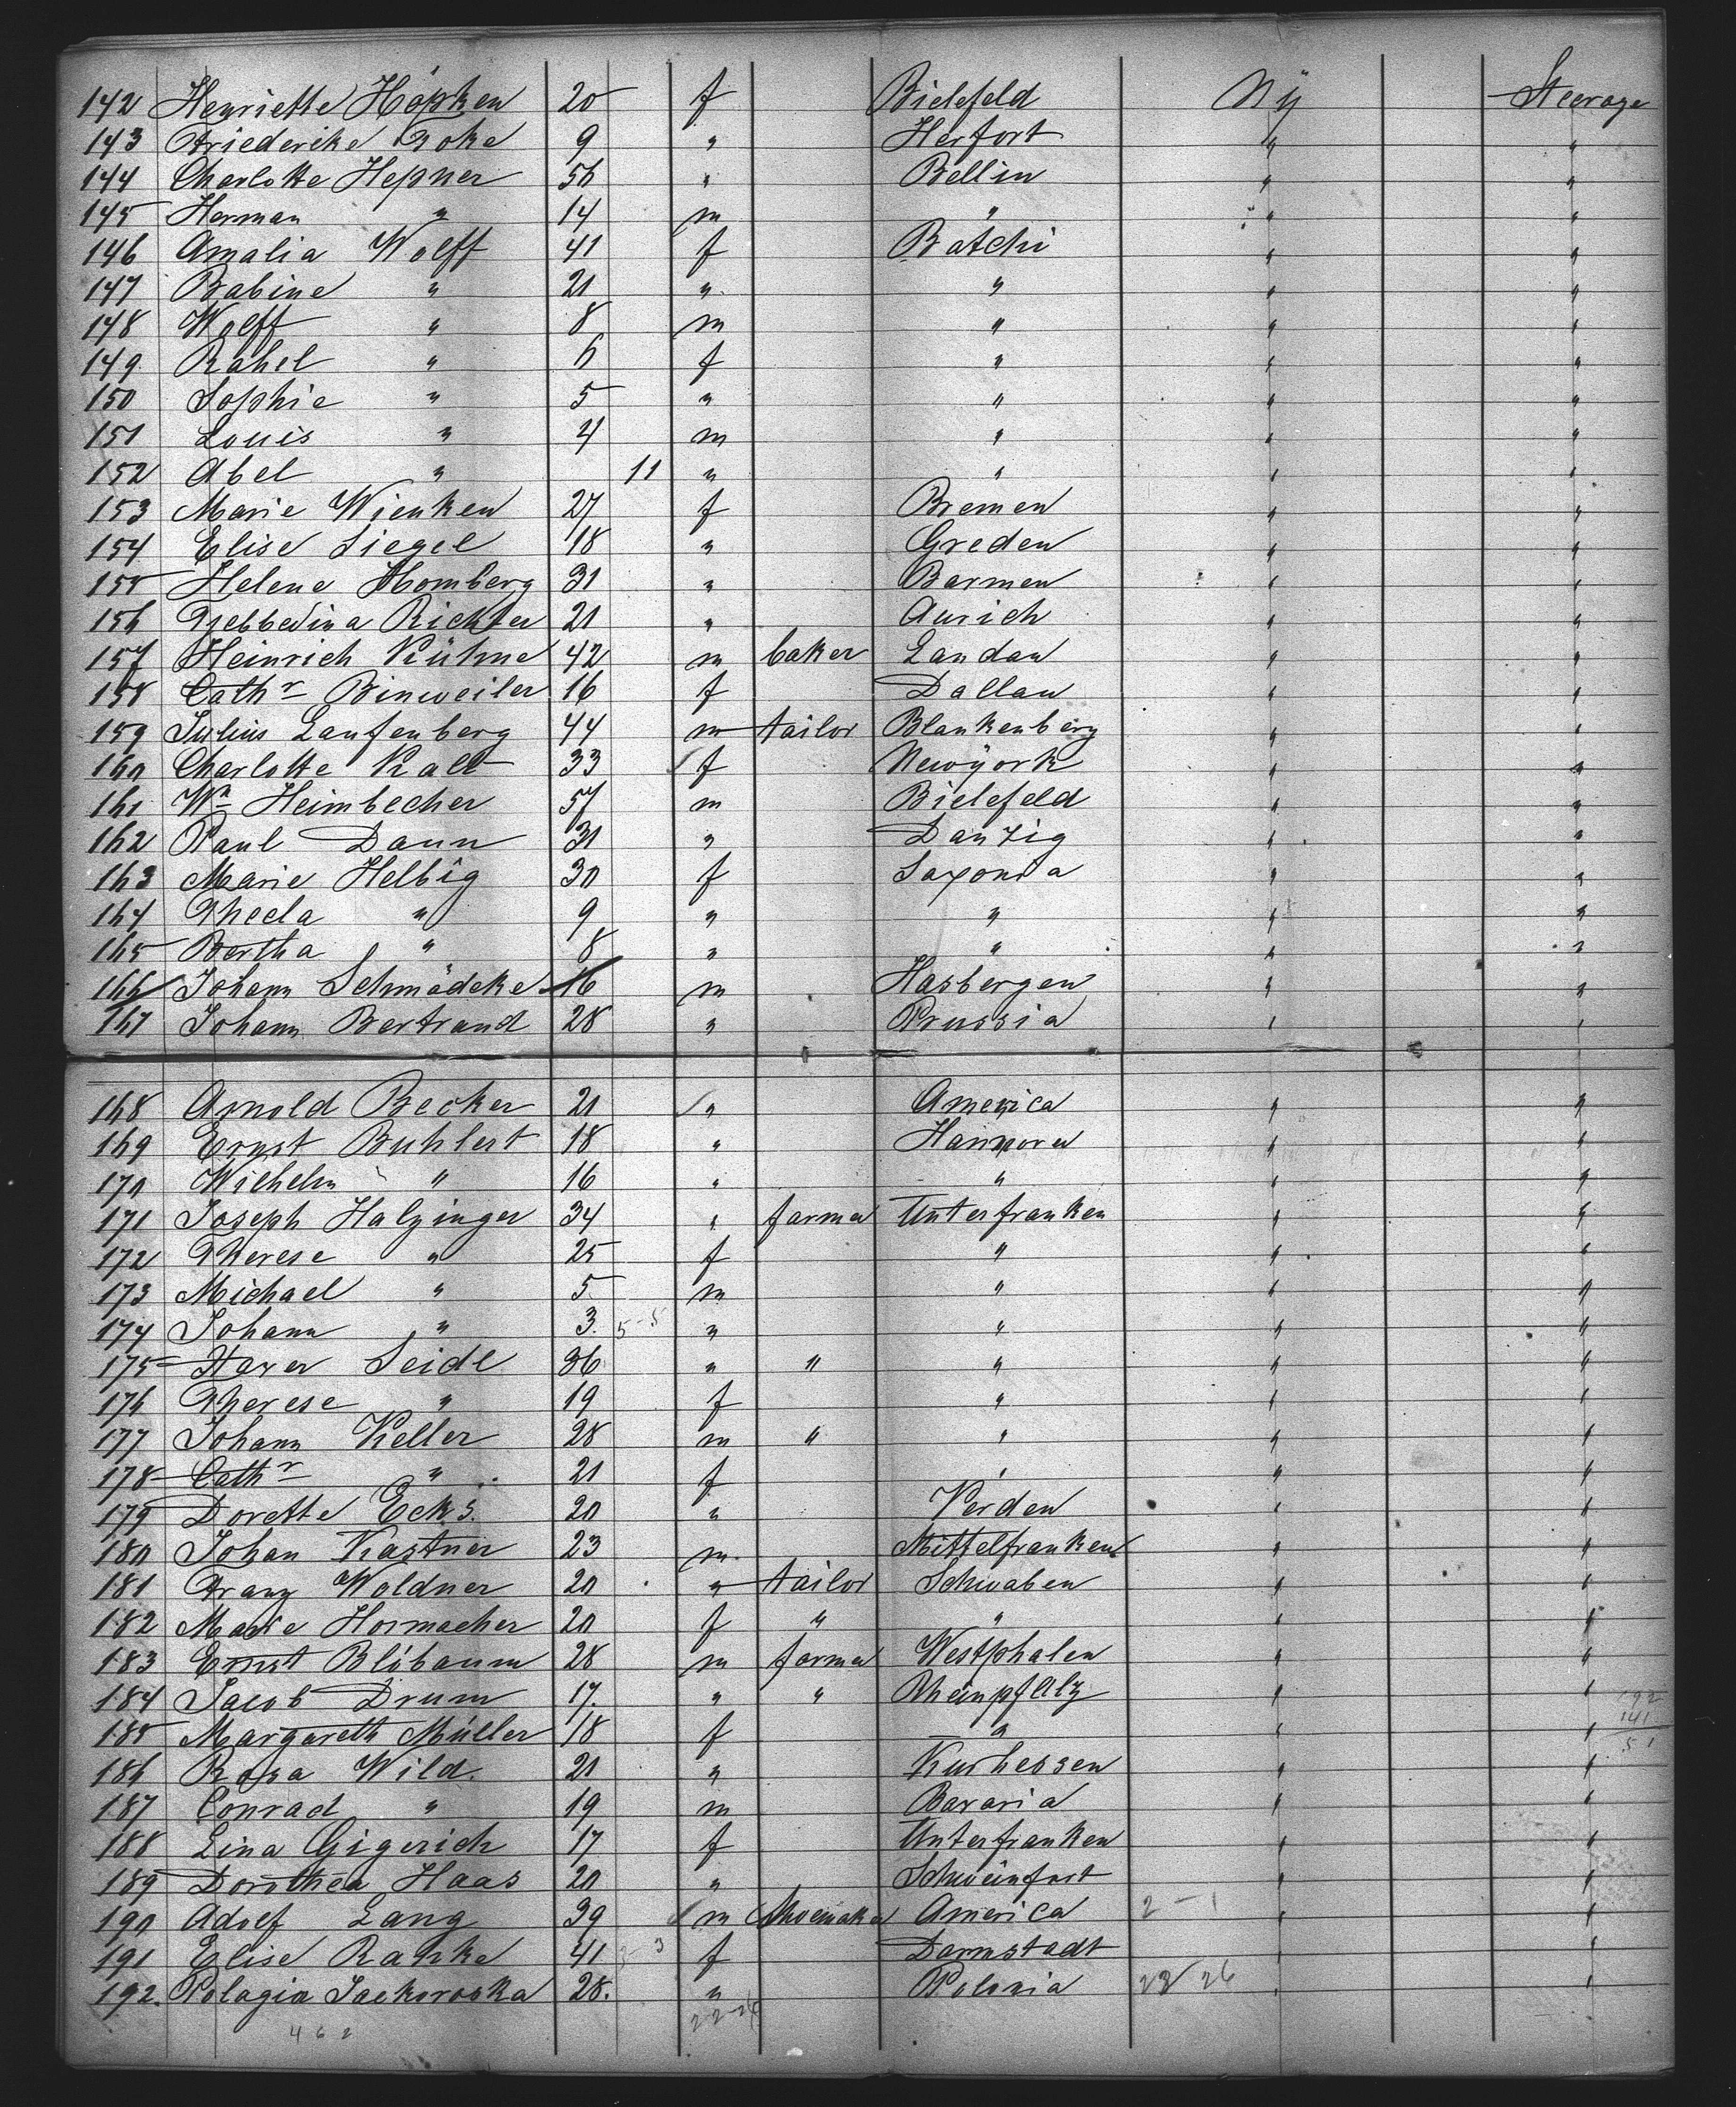 142 Henriette Höpken 20 f Bielefeld NY Steerage
143 Friederike Koke 9 " Herfort " "
144 Charlotte Hepner 56 " Bellin " "
145 Herman " 14 m " " "
146 Amalia Wolff 41 f Batchi " "
147 Babine " 21 " " " "
148 Wolff " 8 m " " "
149 Rahel " 6 f " " "
150 Sophie " 5 " " " "
151 Louis " 4 m " " "
152 Abel " 11 " " " "
153 Marie Wienken 27 f Bremen " "
154 Elise Siegel 18 " Greden " "
155 Helene Homberg 31 " Barmen " "
156 Richter 21 " Aurich " "
157 Heinrich Kühne 42 m baker Landau " "
158 Cathr Binweiler 16 f Dallau " "
159 Julius Laufenberg 44 m tailor Blankenberg " "
160 Charlotte Kalt 33 f Newyork " "
161 Wm Heimbecher 57 m Bielefeld " "
162 Paul Daun 31 " Danzig " "
163 Marie Helbig 30 f Saxonia " "
164 Thecla " 9 " " " "
165 Bertha " 8 " " " "
166 Johann Schmädeke 16 m Hasbergen " "
167 Johann Bertrand 28 " Prussia " "
168 Arnold Becker 21 " America " "
169 Ernst Buhlert 18 " Hannover " "
170 Wilhelm " 16 " " " "
171 Joseph Halzinger 34 " farmer Unterfranken " "
172 Therese " 25 f " " "
173 Michael " 5 m " " "
174 Johann " 3. 5-5 " " " "
175 Xaver Seidl 36 " " " " "
176 Therese " 19 f " " "
177 Johann Keller 28 m " " " "
178 Cathr " 21 f " " "
179 Dorette Ecks. 20 " Verden " "
180 Johan Kastner 23 m. Mittelfranken " "
181 Franz Woldner 20 " tailor Schwaben " "
182 Marie Hormacher 20 f " " " "
183 Ernst Blöbaum 28 m farmer Westphalen " "
184 Jacob Drum 17. " " Rheinpfalz " " 192
185 Margareth Müller 18 f " " " 141
51
186 Rosa Wild. 21 " Kurhessen " "
187 Conrad " 19 m Bavaria " "
188 Lina Gigerich 17 f Unterfranken " "
189 Dorothea Haas 20 " Schweinfurt " "
190 Adolf Lang 39 m shoemaker America 2 - 1 " "
191 Elise Ranke 41 3 f Darmstadt " "
192. Polagia Jackoroska 28. " Polonia 28 26 " "
462 22-26